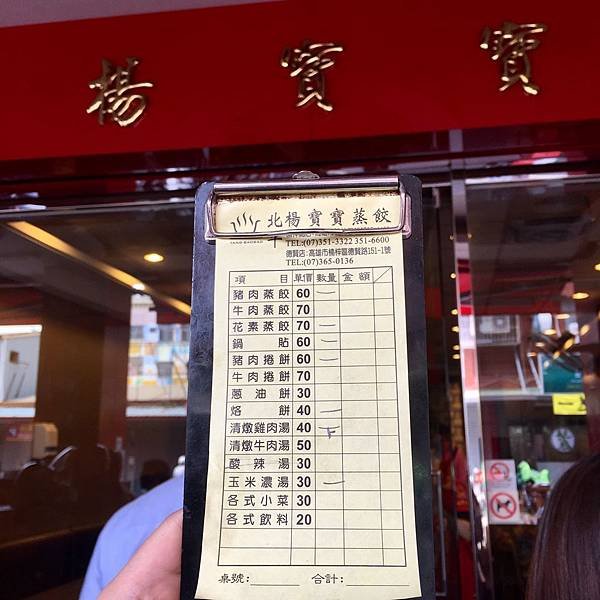 楊寶寶
北楊寶寶蒸餃
TEL:(07)351-3322 351-6600
德賢店:高雄市楠梓區德賢路151-1號
TEL:(07)365-0136
項目 單價 數量 金額
豬肉蒸餃 60 一
牛肉蒸餃 70
花素蒸餃 70 一
鍋貼 60 一
豬肉捲餅 60 一
牛肉捲餅 70
蔥油餅 30
烙餅 40 一
清燉雞肉湯 40 一
清燉牛肉湯 50
酸辣湯 30
玉米濃湯 30 一
各式小菜 30
各式飲料 20
桌號:______ 合計:______